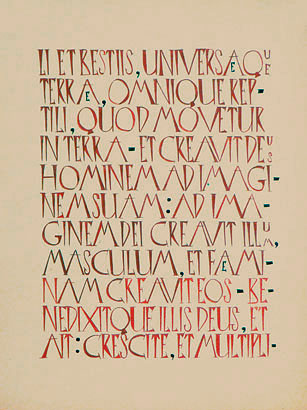 LI ET BESTIIS, UNIVERSÆQUE
TERRÆ, OMNIQUE REP-
TILI, QUOD MOVETUR
IN TERRA - ET CREAVIT DEUS
HOMINEM AD IMAGI
NEM SUAM: AD IMA-
GINEM DEI CREAVIT ILLUM,
MASCULUM, ET FÆMI-
NAM CREAVIT EOS - BE-
NEDIXITQUE ILLIS DEUS, ET
AIT: CRESCITE, ET MULTIPLI-